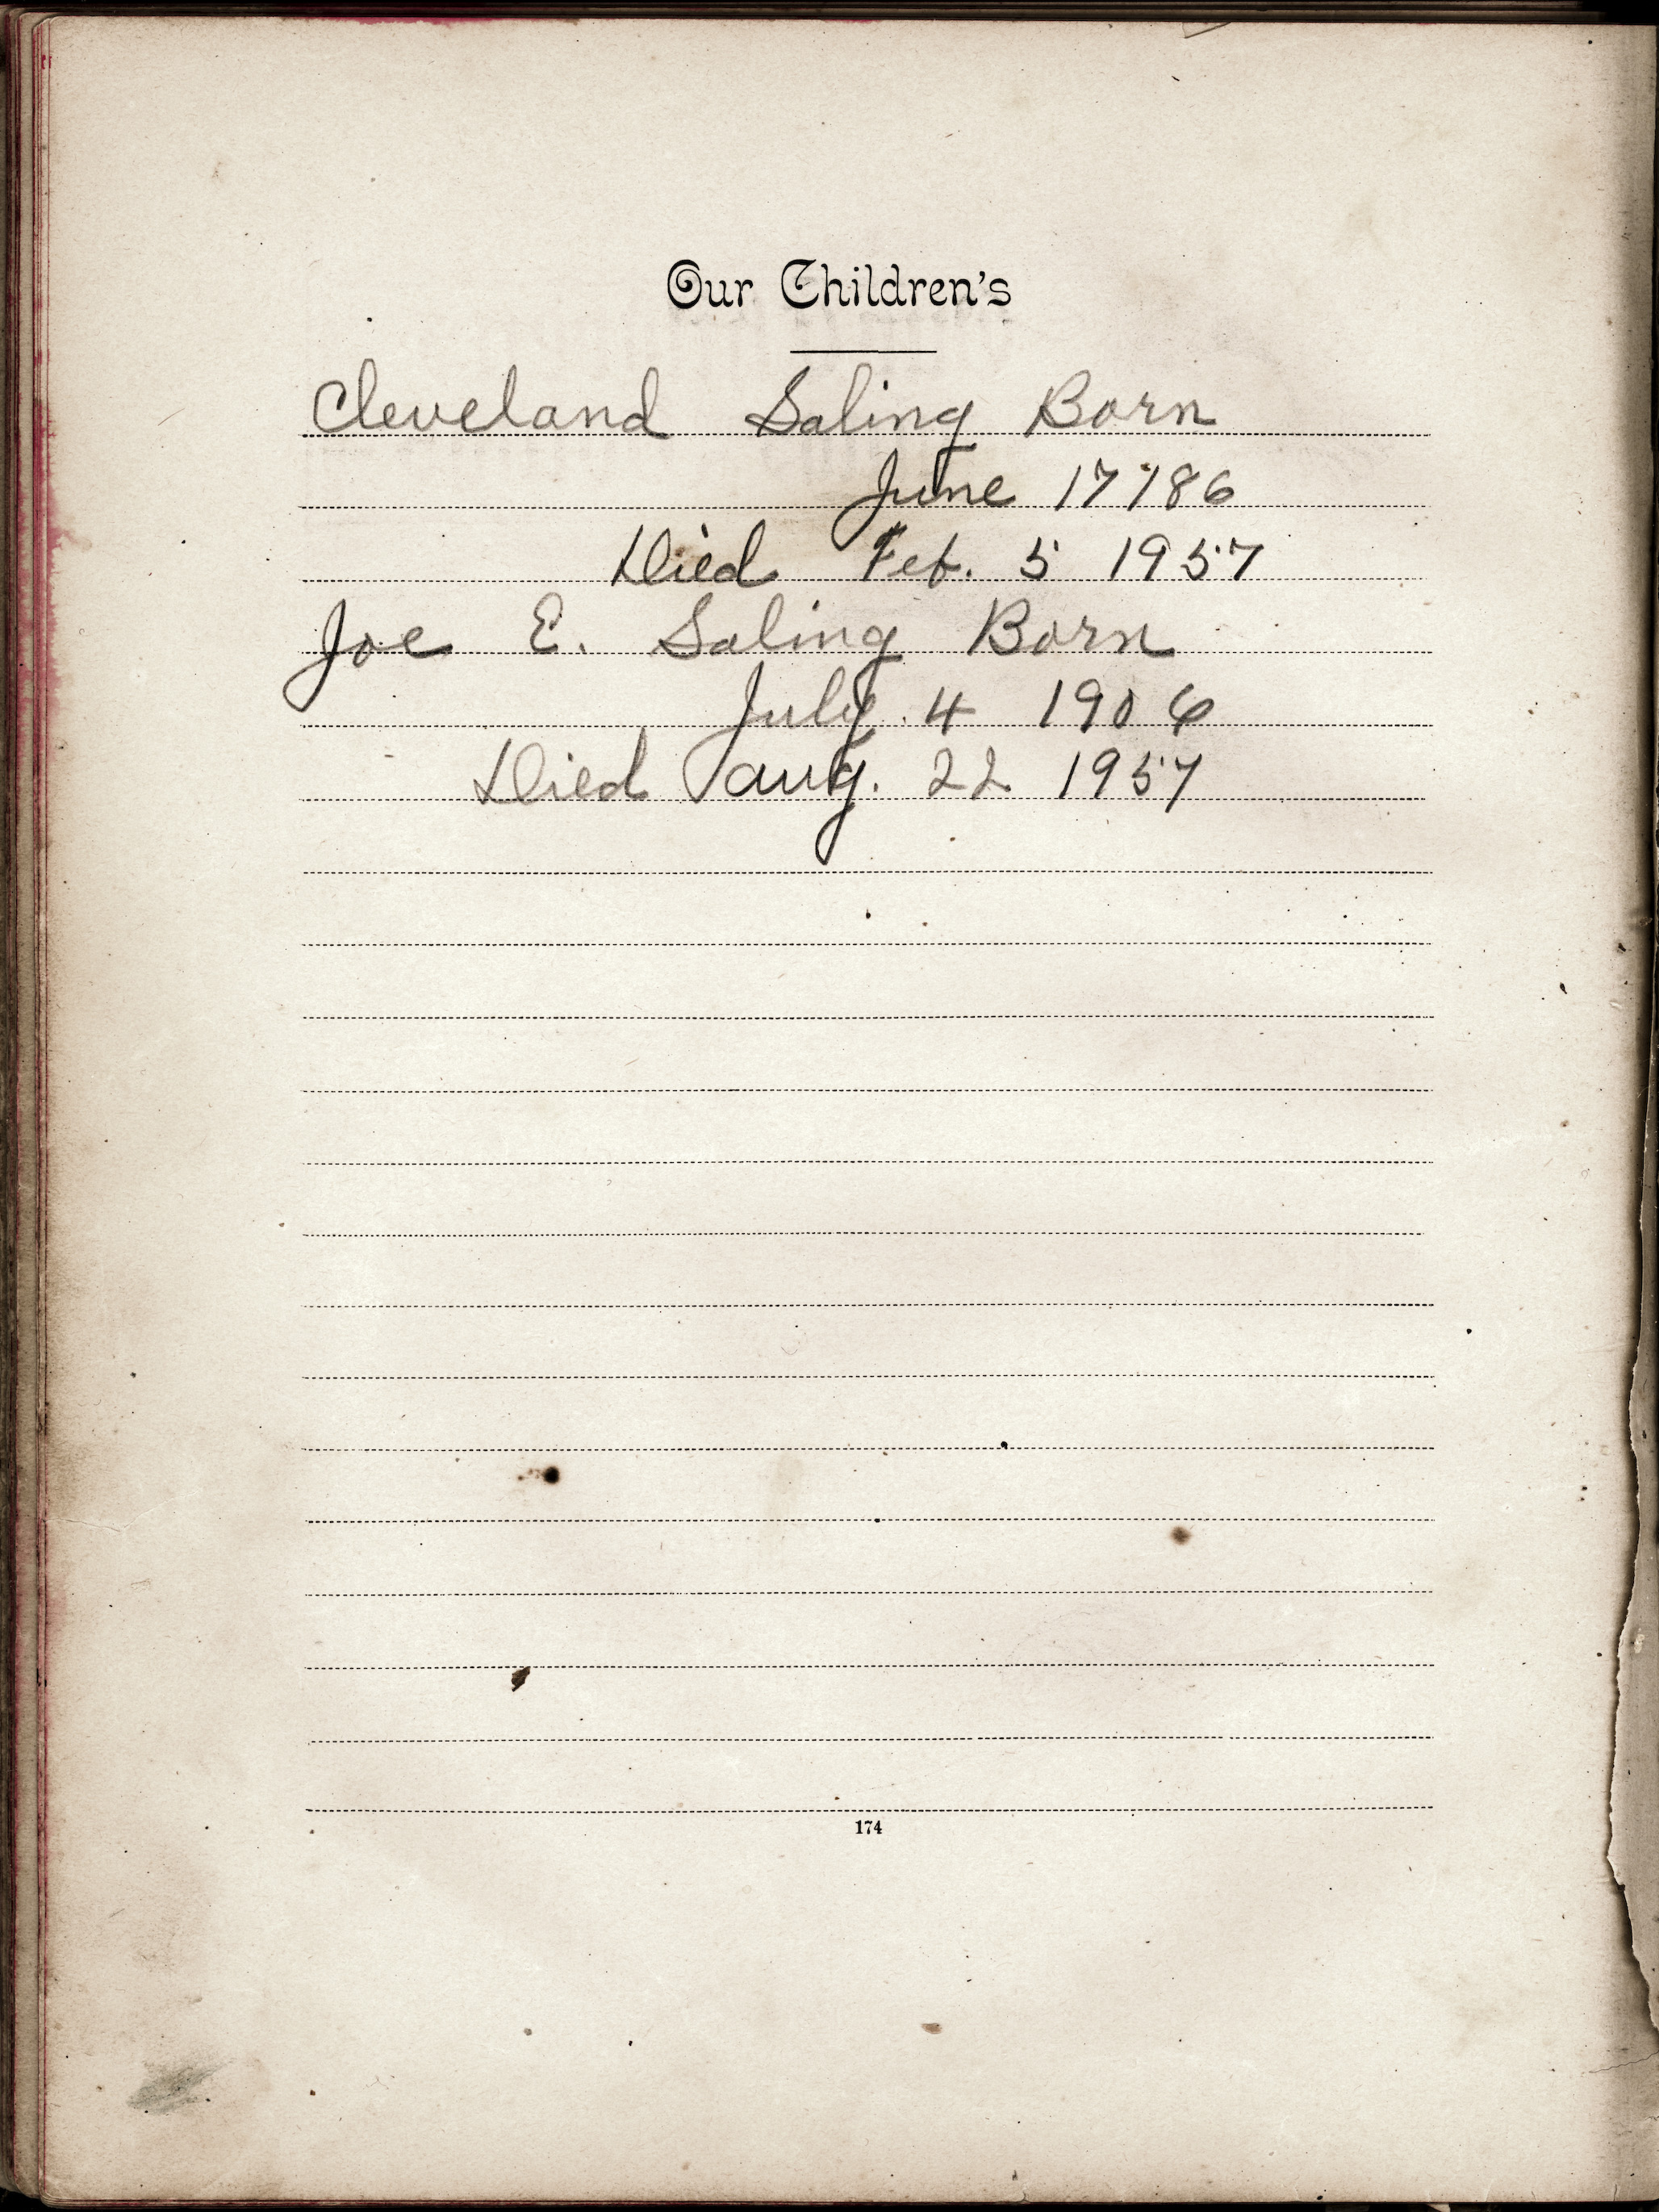 Our Children's
Cleveland Saling Born
June 17 186
Died Feb. 5 1957
Joe E. Saling Born
July 4 1906
Died aug. 22 1957
174